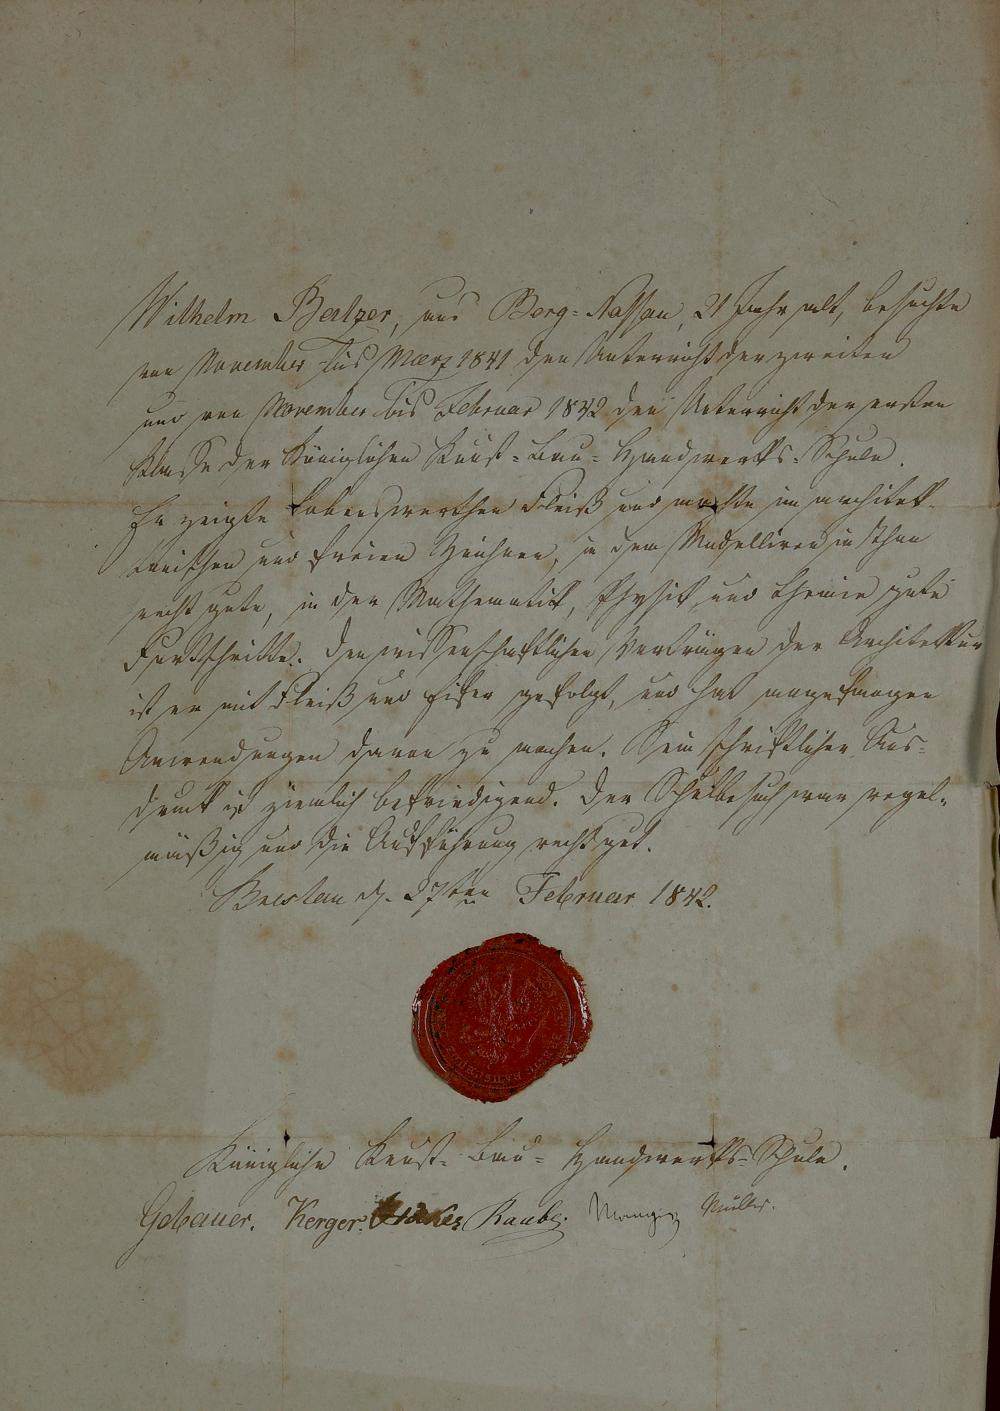 Wilhelm Baltzer, aus Berg-Nassau, 21 Jahr alt, besuchte
von November bis Maerz 1841 den Unterricht der zweiten
und von November bis Februar 1842 den Unterricht der ersten
Klasse der Königlichen Kunst-Bau-Handwerks-Schule.
Er zeigte lobenswerthen Fleiß und machte im architek-
tonischen und freien Zeichnen, in dem Modelliren in Thon
recht gute, in der Mathematik, Physik und Chemie gute
Fortschritte. Den wissenschaftlichen Vorträgen der Architektur
ist er mit Fleiß und Eifer gefolgt, und hat angefangen
Anwendungen davon zu machen. Sein schriftlicher Aus-
druck ist ziemlich befriedigend. Der Schulbesuch war regel-
mäßig und die Aufführung recht gut.
Breslau d. 27ten Februar 1842.
Königliche Kunst-Bau-Handwerks-Schule.
Gebauer. Kerger. Raabe. Müller.